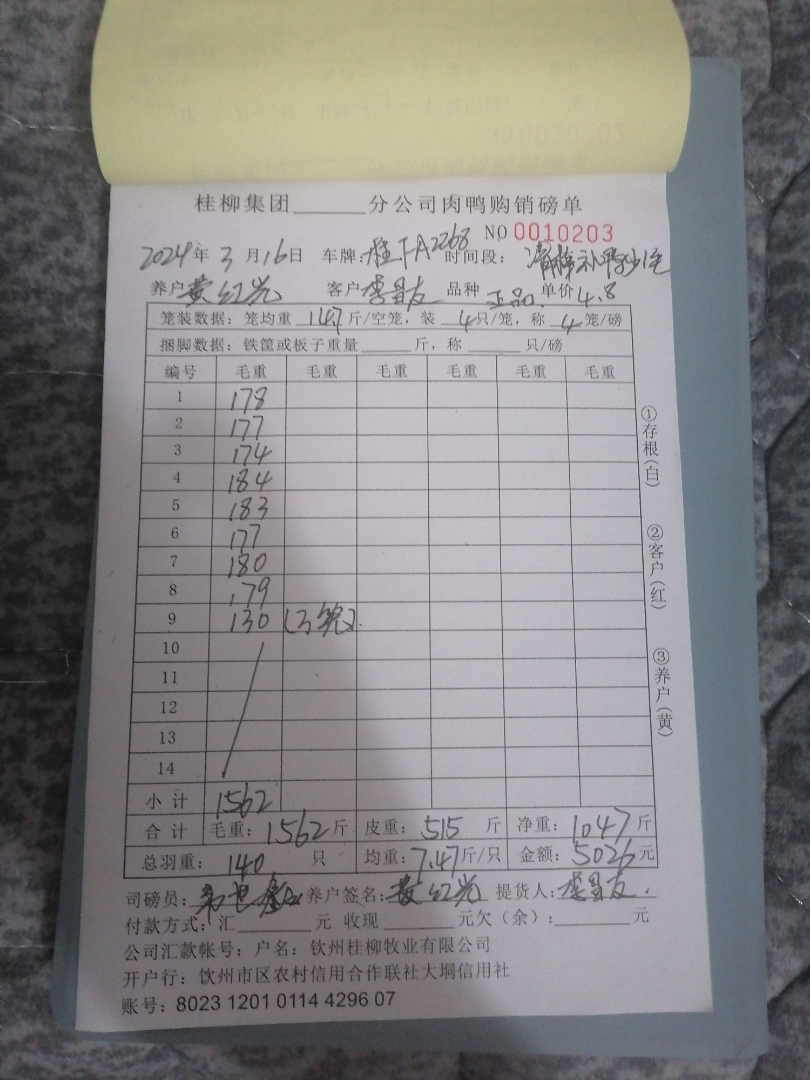 桂柳集团______分公司肉鸭购销磅单
NO 0010203
2024年 3 月 16日 车牌: 桂FA2268 时间段:
养户 黄红光 客户 李昌友 品种 正品 单价 4.8
笼装数据: 笼均重 14.7 斤/空笼, 装 4 只/笼, 称 4 笼/磅
捆脚数据: 铁筐或板子重量______斤, 称______只/磅
编号 毛重 毛重 毛重 毛重 毛重 毛重
1 178
2 177
3 174
4 184
5 183
6 177
7 180
8 179
9 130 (3笼)
10
11
12
13
14
小计 1562
合计 毛重: 1562 斤 皮重: 515 斤 净重: 1047 斤
总羽重: 140 只 均重: 7.47 斤/只 金额: 5026 元
司磅员: 养户签名: 黄红光 提货人: 李昌友
付款方式: 汇______元 收现______元欠(余):______元
公司汇款帐号: 户名: 钦州桂柳牧业有限公司
开户行: 钦州市区农村信用合作联社大垌信用社
账号: 8023 1201 0114 4296 07
①存根(白)
②客户(红)
③养户(黄)